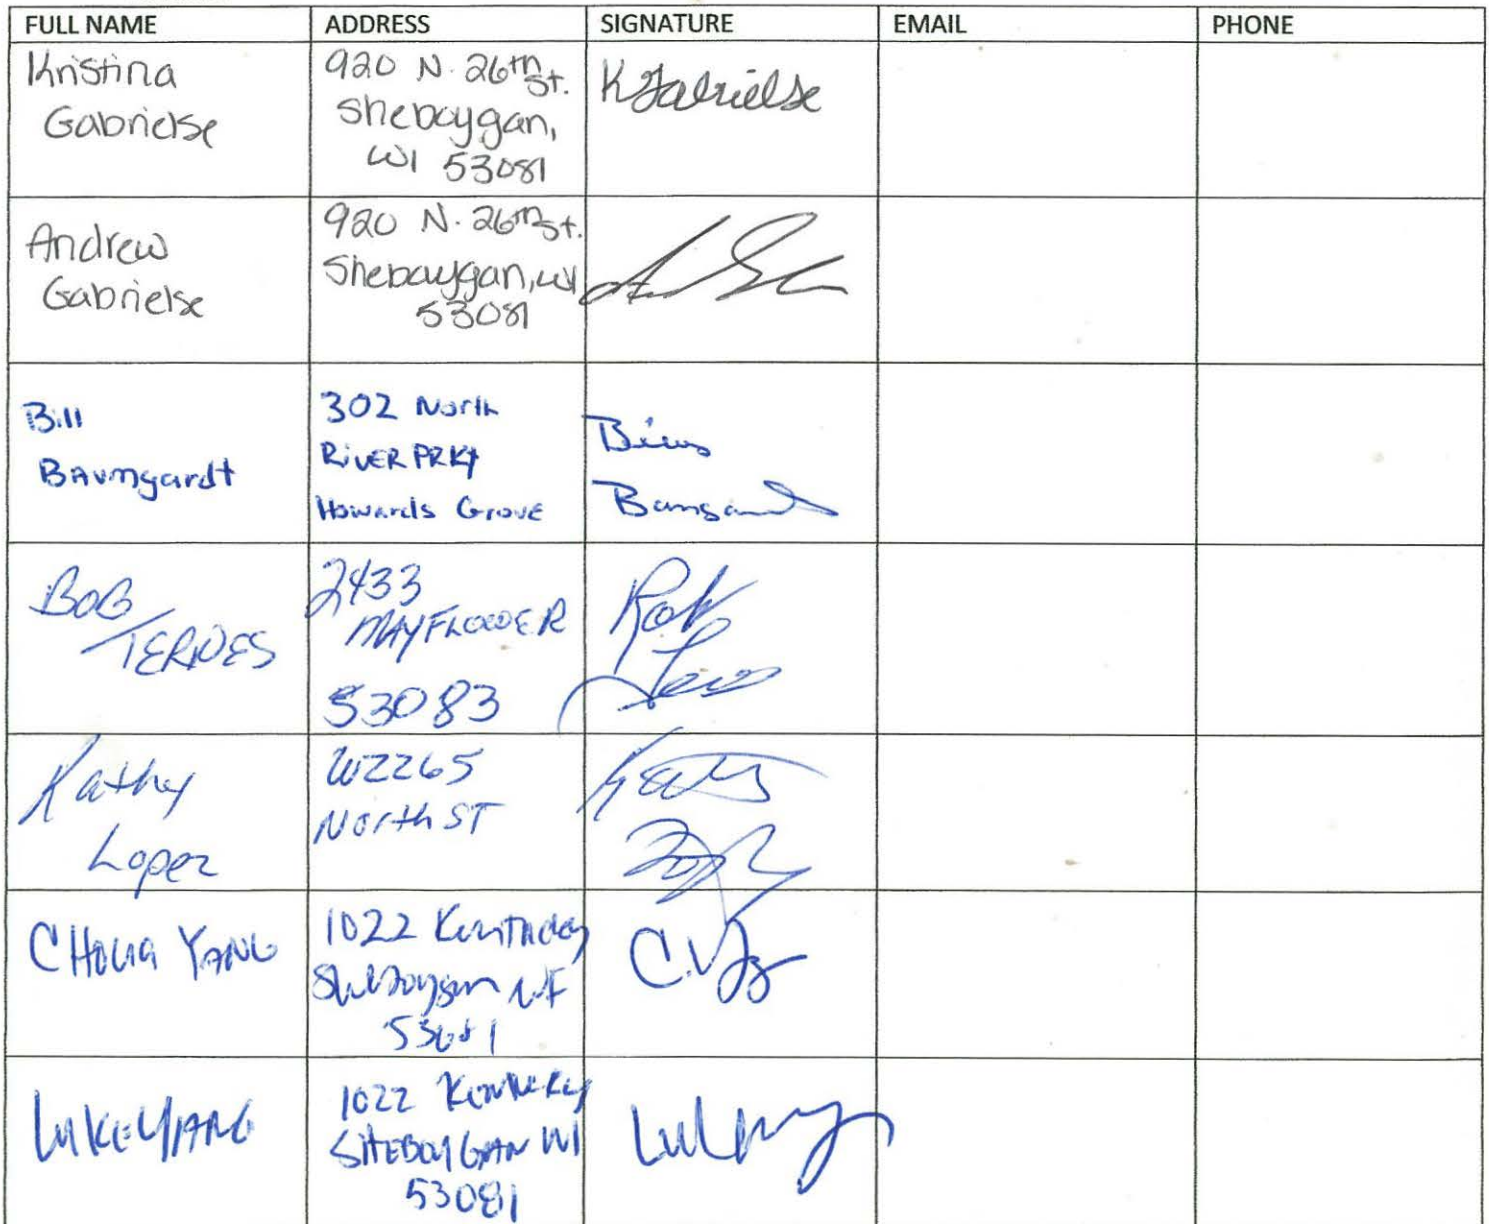 FULL NAME ADDRESS SIGNATURE EMAIL PHONE
Kristina
Gabrielse
920 N. 26th St.
Sheboygan,
WI 53081
KGabrielse
Andrew
Gabrielse
920 N. 26th St.
Sheboygan, WI
53081
Bill
Baumgardt
302 North
RIVER PRKY
Howards Grove
BOB
TERNES
2433
MAYFLOWER
53083
Kathy
Lopez
W2265
North ST
CHOUA YANG
1022 Kentucky
Sheboygan WI
53081
LUKE YANG
1022
SHEBOYGAN WI
53081